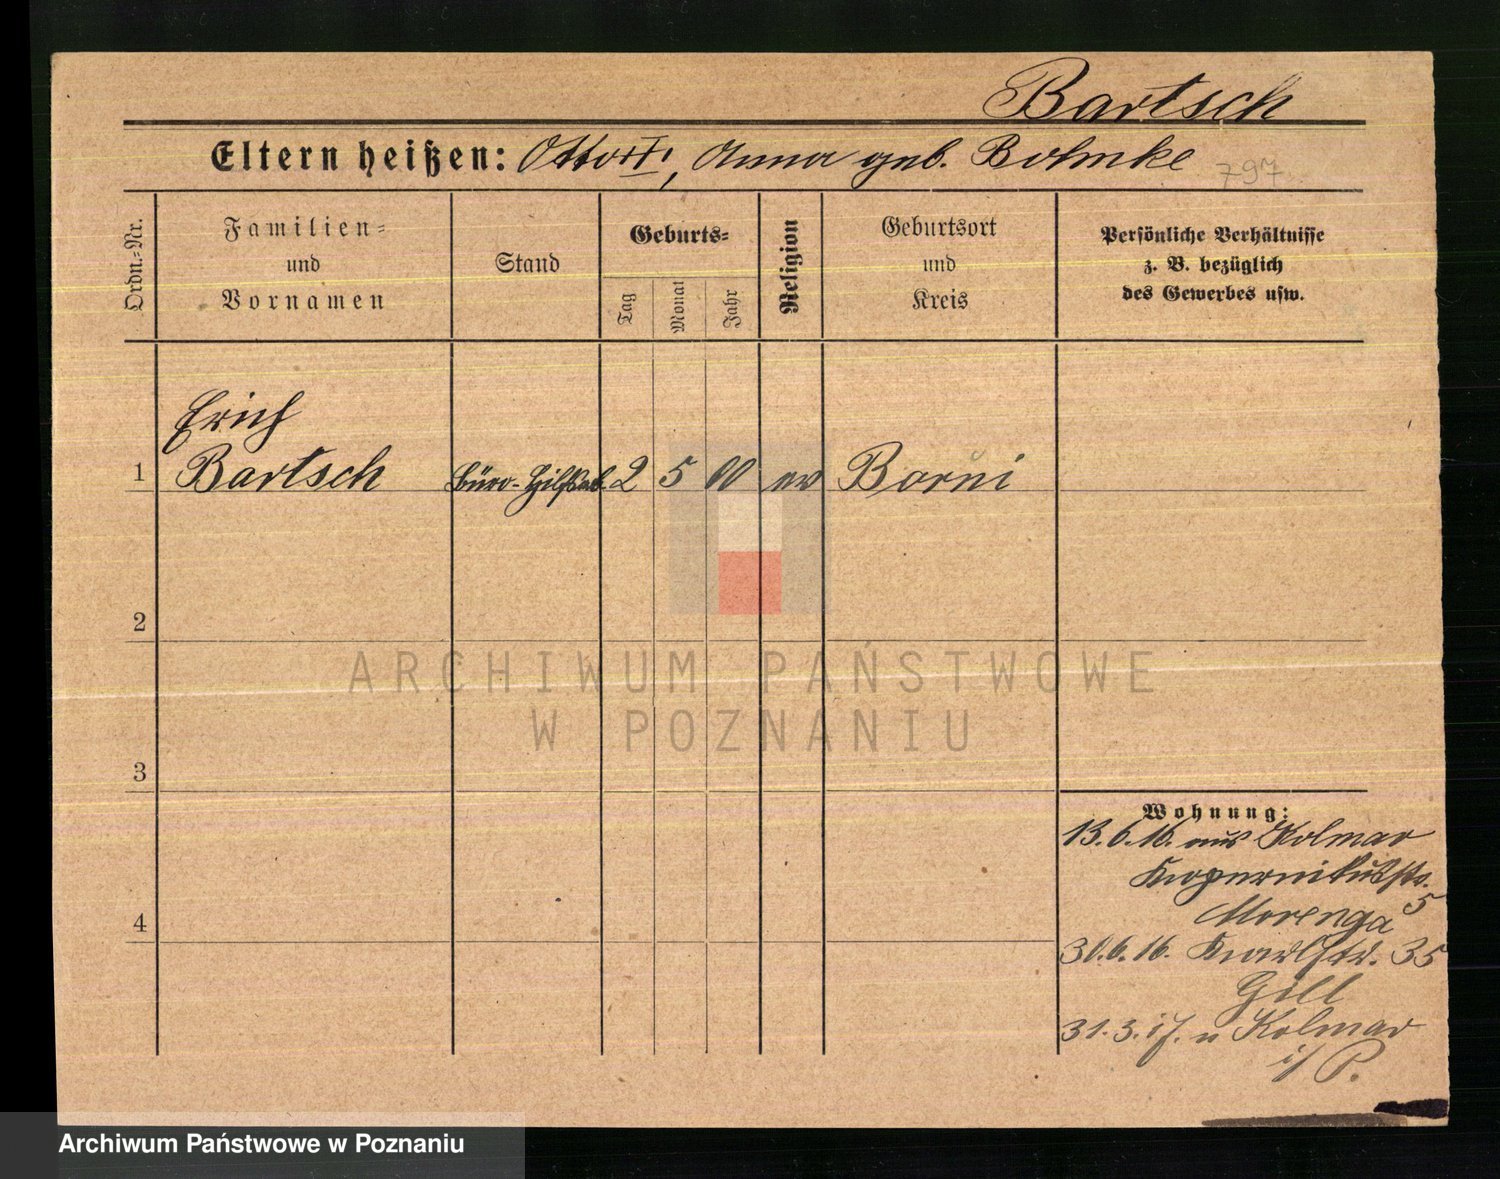 Bartsch
Eltern heißen: Otto, Anna geb. Bohmke
797
Ordn.-Nr.
Familien-
und
Vornamen
Stand
Geburts-
Tag
Monat
Jahr
Religion
Geburtsort
und
Kreis
Persönliche Verhältnisse
z. B. bezüglich
des Gewerbes usw.
Erich
1 Bartsch Büro- 2 5 00 ev
2
3
4
Wohnung:
13.6.16. aus Kolmar
Kopernikusstr.
5
30.6.16. Karlstr. 35
Gill
31.3.17. n Kolmar
i/P.
ARCHIWUM PAŃSTWOWE
W POZNANIU
Archiwum Państwowe w Poznaniu